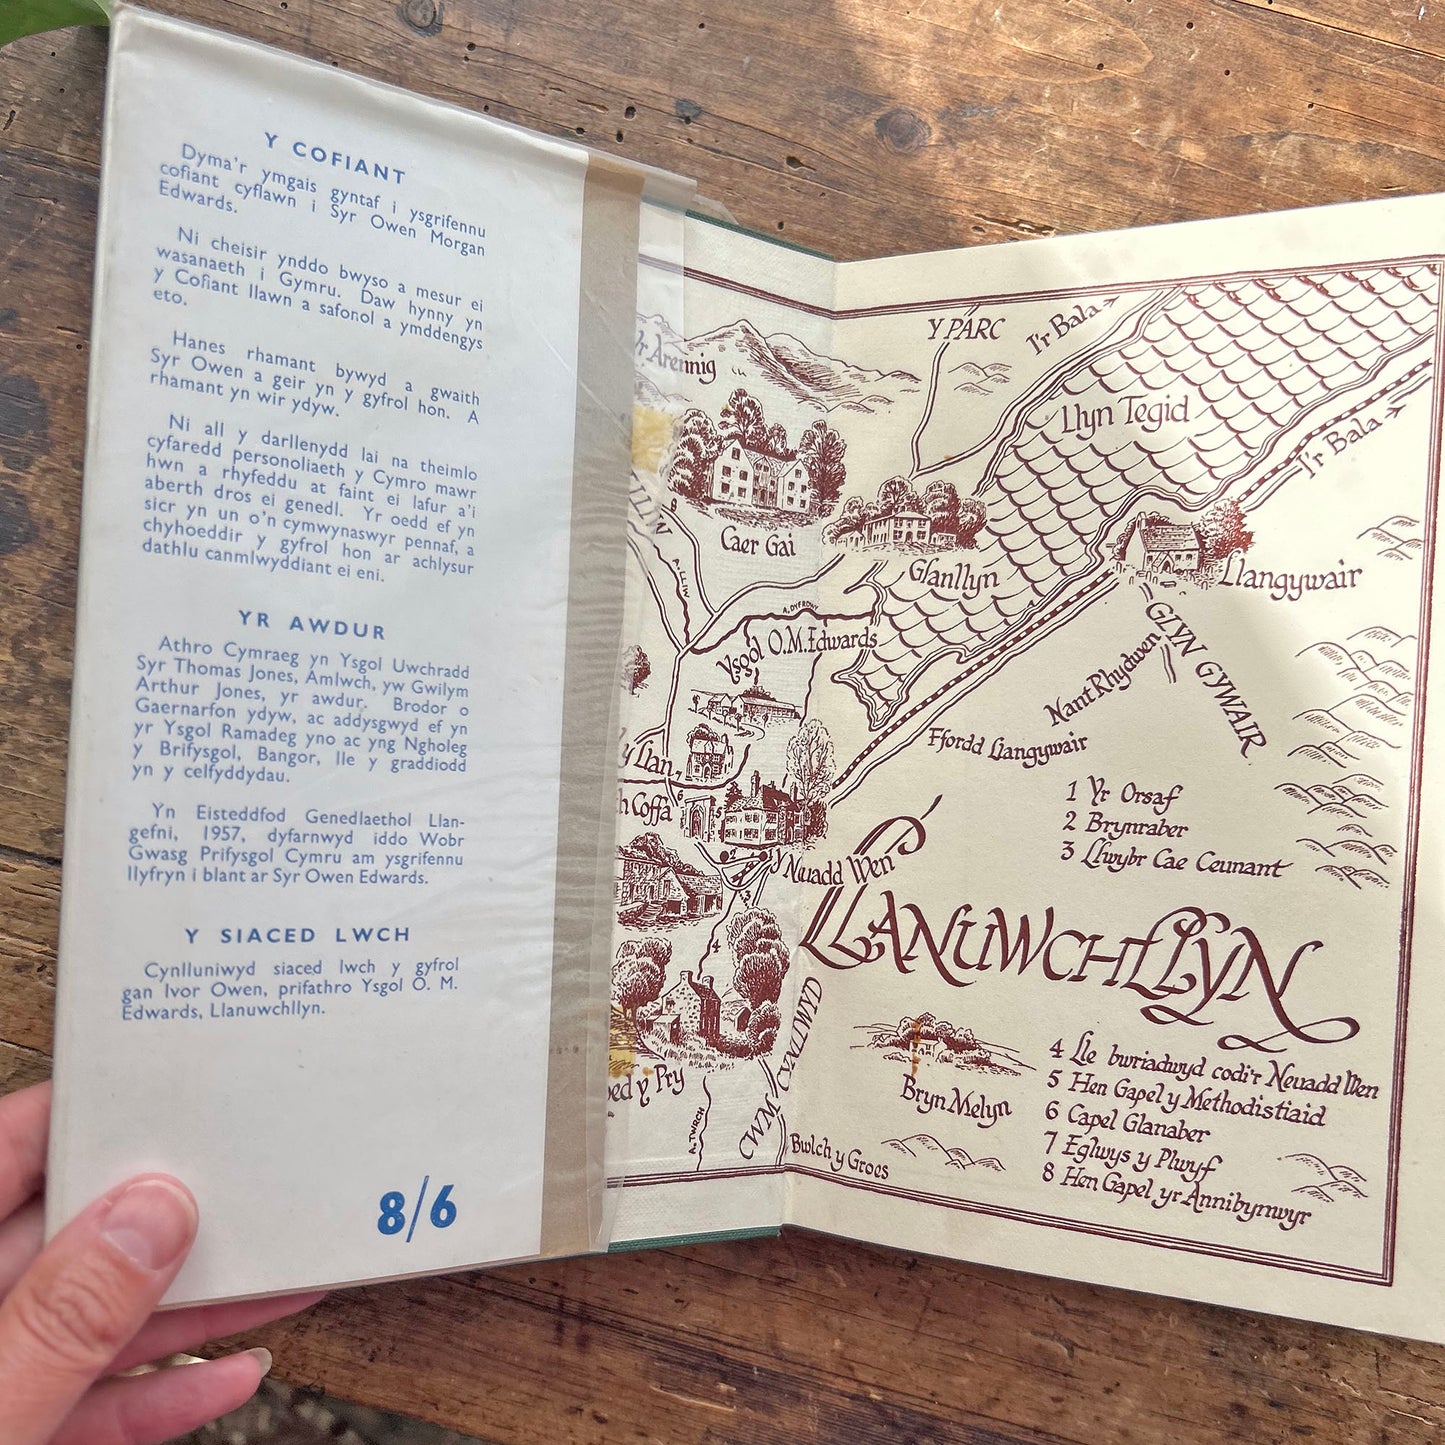 Y COFIANT
Dyma'r ymgais gyntaf i ysgrifennu
cofiant cyflawn i Syr Owen Morgan
Edwards.
Ni cheisir ynddo bwyso a mesur ei
wasanaeth i Gymru. Daw hynny yn
y Cofiant llawn a safonol a ymddengys
eto.
Hanes rhamant bywyd a gwaith
Syr Owen a geir yn y gyfrol hon. A
rhamant yn wir ydyw.
Ni all y darllenydd lai na theimlo
cyfaredd personoliaeth y Cymro mawr
hwn a rhyfeddu at faint ei lafur a'i
aberth dros ei genedl. Yr oedd ef yn
sicr yn un o'n cymwynaswyr pennaf, a
chyhoeddir y gyfrol hon ar achlysur
dathlu canmlwyddiant ei eni.
YR AWDUR
Athro Cymraeg yn Ysgol Uwchradd
Syr Thomas Jones, Amlwch, yw Gwilym
Arthur Jones, yr awdur. Brodor o
Gaernarfon ydyw, ac addysgwyd ef yn
yr Ysgol Ramadeg yno ac yng Ngholeg
y Brifysgol, Bangor, lle y graddiodd
yn y celfyddydau.
Yn Eisteddfod Genedlaethol Llan-
gefni, 1957, dyfarnwyd iddo Wobr
Gwasg Prifysgol Cymru am ysgrifennu
llyfryn i blant ar Syr Owen Edwards.
Y SIACED LWCH
Cynlluniwyd siaced lwch y gyfrol
gan Ivor Owen, prifathro Ysgol O. M.
Edwards, Llanuwchllyn.
8/6
Yr Arennig
Y PARC
I'r Bala
Llyn Tegid
I'r Bala
Caer Gai
Glanllyn
Llangywair
A. LLIW
A. DYFRDWY
Ysgol O.M. Edwards
GLYN GYWAIR
Nant Rhydwen
Ffordd Llangywair
y Llan
Coffa
Y Neuadd Wen
1 Yr Orsaf
2 Brynraber
3 Llwybr Cae Ceunant
LLANUWCHLLYN
CWM CYNLLWYD
A. TWRCH
y Pry
Bryn Melyn
Bwlch y Groes
4 Lle bwriadwyd codi'r Neuadd Wen
5 Hen Gapel y Methodistiaid
6 Capel Glanaber
7 Eglwys y Plwyf
8 Hen Gapel yr Annibynwyr